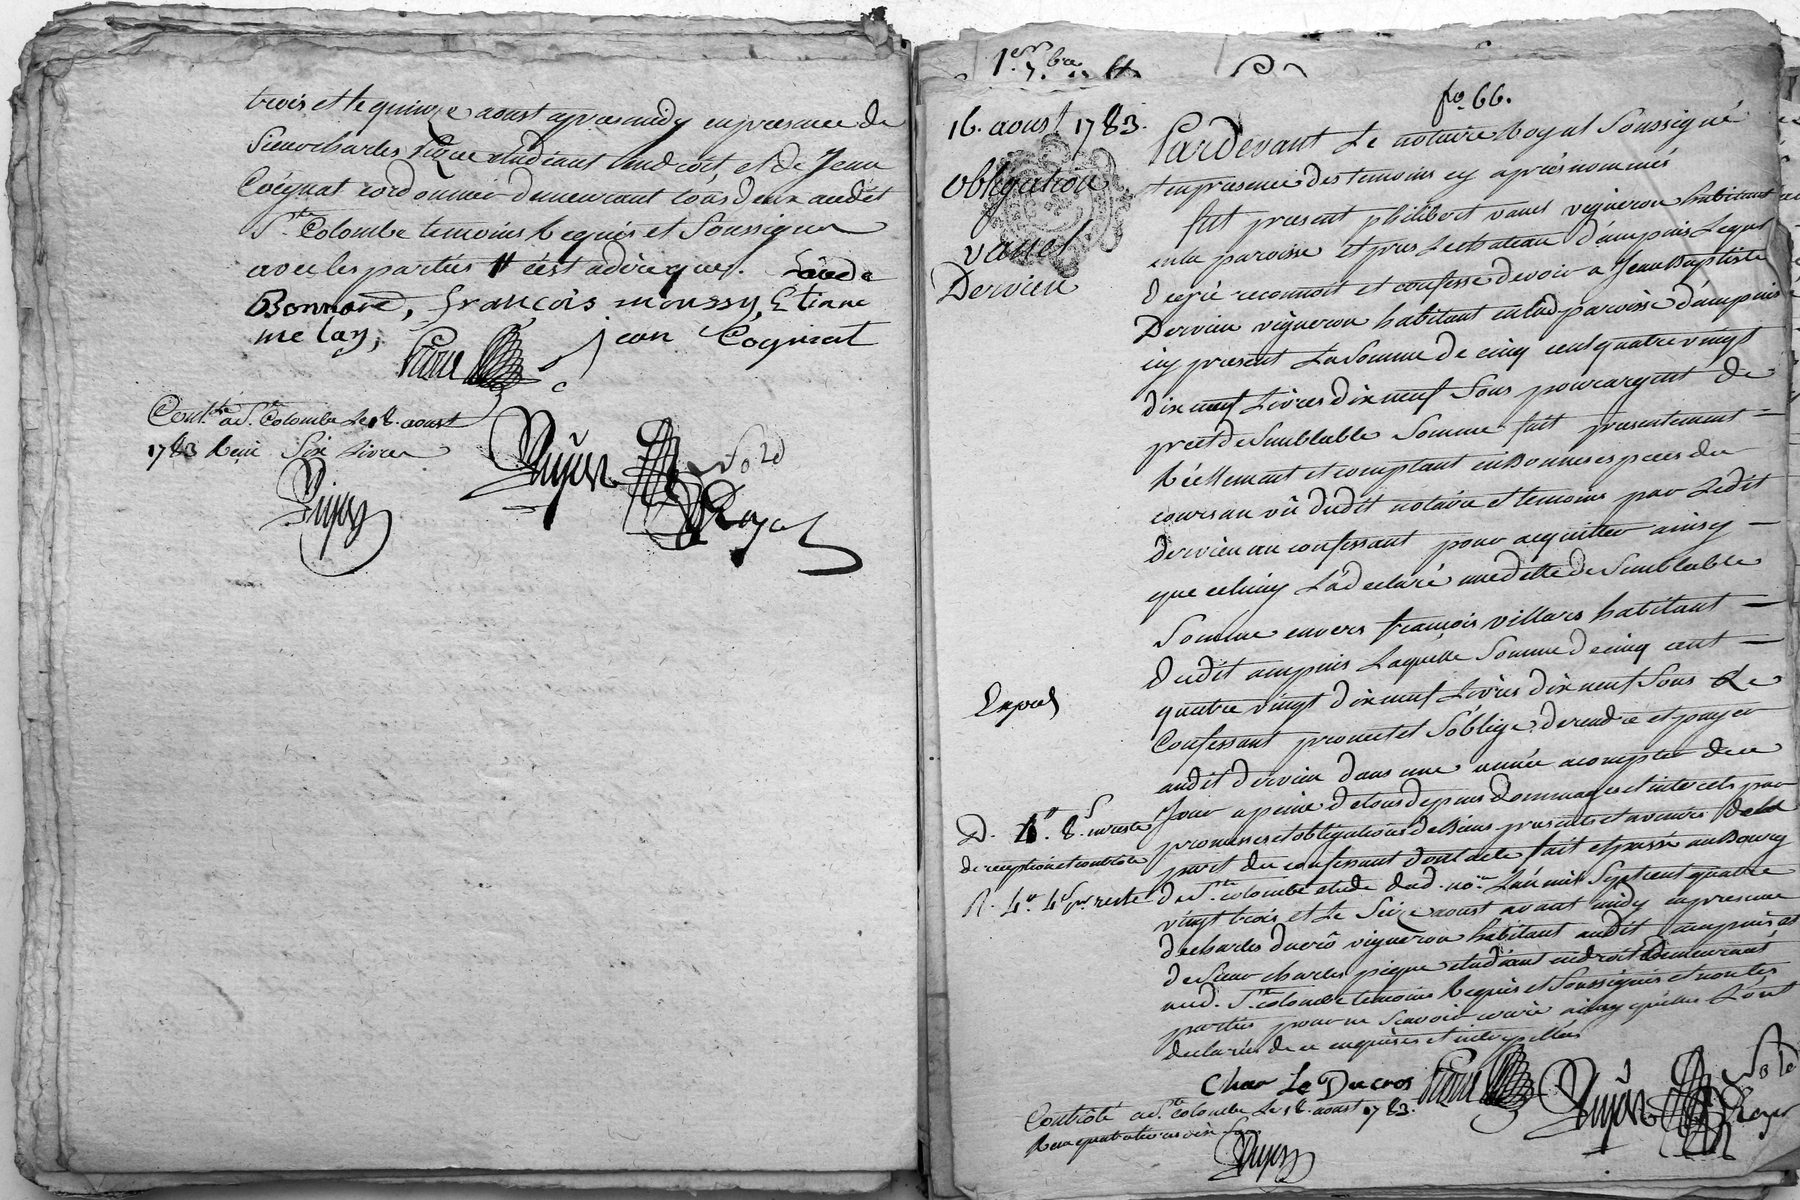 trois et le quinze aoust apres midy en presence de
Sieur charles pique etudiant en droit, et de Jean
Coignat cordonnier demeurant tous deux audit
Ste Colombe temoins requis et Soussignes
avec les parties
Bonnard, françois moussy, Etienne
melay,
jean Cogniat
Pique
Contlé a Ste Colombe Le 18. aoust
1783 Reçu Six Livres
1er 7bre
fo. 66.
16. aoust 1783.
obligation
vanel
Dervieu
Pardevant Le notaire Royal Soussigné
et en presence des temoins cy après nommés
fut present philibert vanel vigneron habitant
en la paroisse et pres Le chateau d'ampuis Lequel
de gré reconnoit et confesse devoir a Jean Baptiste
Dervieu vigneron habitant en lad paroisse d'ampuis
cy present La Somme de cinq cent quatre vingt
dix neuf Livres dix neuf Sous pour argent de
prest de Semblable Somme fait presentement
Réellement et comptant en Bonnes especes du
cours au vû dudit notaire et temoins par Ledit
dervieu au confessant pour acquitter ainsy
que celuicy L'a declaré une dette de Semblable
Somme envers françois villars habitant
dudit ampuis Laquelle Somme de cinq cent
quatre vingt dix neuf Livres dix neuf Sous Le
Confessant promet et S'oblige de rendre et payer
audit dervieu dans une année a compter de ce
Jour a peine de tous depens dommages et interets par
promesses et obligations de Biens presents et avenirs de la
part du confessant dont acte fait et passé au Bourg
de Ste Colombe etude dud. nore L'an mil Sept cent quatre
vingt trois et Le Seize aoust avant midy en presence
de charles ducros vigneron habitant audit ampuis et
de Sieur charles pique etudiant en droit demeurant
aud. Ste Colombe temoins Requis et Soussignés et non les
parties pour ne Scavoir ecrire ainsy qu'elles L'ont
declaré de ce enquises et interpellées
Exped
de reception et controle
Char Le Ducros
Pique
Controlé a Ste Colombe Le 18. aoust 1783.